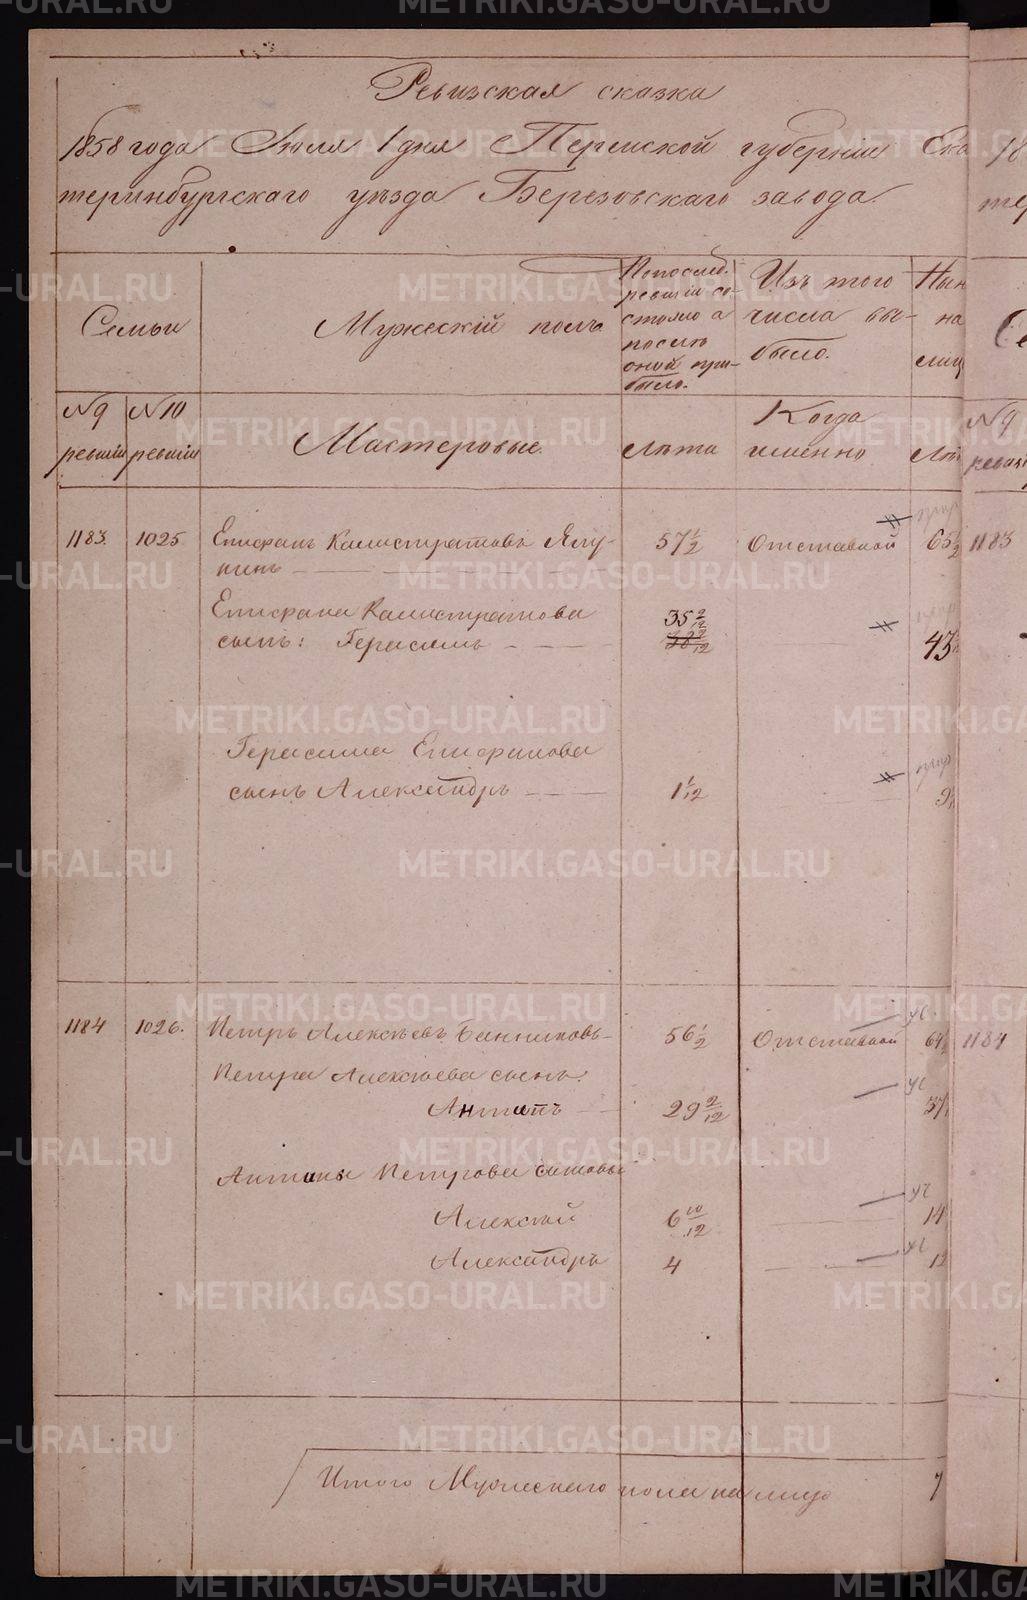 Ревизская сказка
1858 года Июля 1 дня Пермской губернии Ека
теринбургского уѣзда Березовскаго завода.
Семьи
Мужескій полъ
По послѣд.
ревизіи со-
стояло а
послѣ
оной при-
было.
Изъ того
числа вы-
было.
Нын
на
лиц
№ 9
ревизіи
№ 10
ревизіи
Мастеровые.
Лѣта
Когда
именно
Лѣ
№ 9
ревизі
1183. 1025 Епифанъ Калистратовъ Ялу- 57 1/2 Отставной 65 1/2 1183
нинъ
Епифана Калистратова 35 2/12
сынъ: Герасимъ 43
Герасима Епифанова
сынъ Александръ 1 1/12 9
1184 1026. Петръ Алексѣевъ Банниковъ 56 1/2 Отставной 64 1/2 1184
Петра Алексѣева сынъ.
Антипъ 29 2/12 37
Антипы Петрова сыновья
Алексѣй 6 10/12 14
Александръ 4 12
Итого Мужескаго пола на лицо 7
METRIKI.GASO-URAL.RU